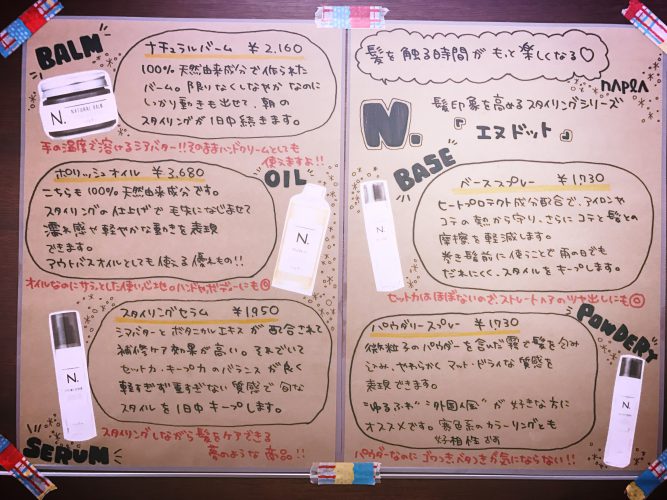 BALM
ナチュラルバーム ¥2,160
100%天然由来成分で作られた
バーム。限りなくしなやかなのに
しっかり動きも出せて、朝の
スタイリングが1日中続きます。
N.
NATURAL BALM
手の温度で溶けるシアバター!!そのままハンドクリームとしても
使えますよ!!
ポリッシュオイル ¥3,680
OIL
こちらも100%天然由来成分です。
スタイリングの仕上げで毛先になじませて
濡れ感や軽やかな動きを表現
できます。
アウトバスオイルとしても使える優れもの!!
N.
オイルなのにサラッとした使い心地。ハンドやボディーにも◎
スタイリングセラム ¥1,950
シアバターとボタニカルエキスが配合されて
補修ケア効果が高い。それでいて
セット力・キープ力のバランスが良く
軽すぎず重すぎない質感で旬な
スタイルを1日中キープします。
N.
SERUM
スタイリングしながら髪をケアできる
夢のような商品!!
髪を触る時間がもっと楽しくなる♡
napla
N.
髪印象を高めるスタイリングシリーズ
『エヌドット』
BASE
ベーススプレー ¥1,730
ヒートプロテクト成分配合で、アイロンや
コテの熱から守り、さらにコテと髪との
摩擦を軽減します。
巻き髪前に使うことで雨の日でも
だれにくく、スタイルをキープします。
N.
セット力はほぼないので、ストレートヘアのツヤ出しにも◎
パウダリースプレー ¥1,730
POWDERY
微粒子のパウダーを含んだ霧で髪を包み
込み、やわらかくマット・ドライな質感を
表現できます。
"ゆるふわ" "外国人風"が好きな方に
オススメです。寒色系のカラーリングとも
好相性です
N.
パウダーなのにゴワつき、ベタつきが気にならない!!